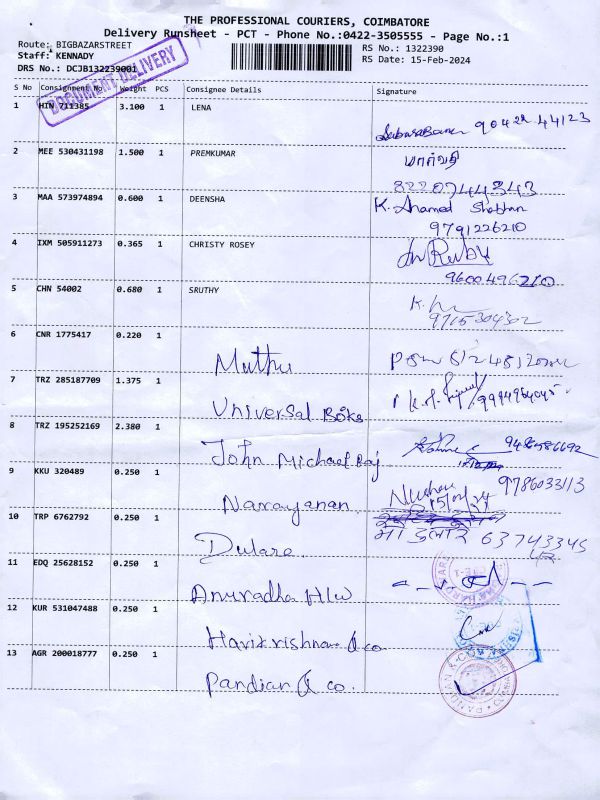 THE PROFESSIONAL COURIERS, COIMBATORE
Delivery Runsheet - PCT - Phone No.:0422-3505555 - Page No.:1
Route: BIGBAZARSTREET
RS No.: 1322390
Staff: KENNADY
RS Date: 15-Feb-2024
DRS No.: DCJB132239001
DOCUMENT DELIVERY
S No Consignment No. Weight PCS Consignee Details Signature
1 HIN 711385 3.100 1 LENA
90422 44123
2 MEE 530431198 1.500 1 PREMKUMAR
8220744343
3 MAA 573974894 0.600 1 DEENSHA K. Ahamed
9791226210
4 IXM 505911273 0.365 1 CHRISTY ROSEY
Ruby
9600496210
5 CHN 54002 0.680 1 SRUTHY
9715304302
6 CNR 1775417 0.220 1
Muthu
7 TRZ 285187709 1.375 1
Universal Boks
8 TRZ 195252169 2.380 1
John Michael Raj
9 KKU 320489 0.250 1
9786033113
Narayanan 15/02/24
10 TRP 6762792 0.250 1
Dulare 63743345
11 EDQ 25628152 0.250 1
Anuradha H/w
12 KUR 531047488 0.250 1
Harikrishnan & co
13 AGR 200018777 0.250 1
Pandian & co.